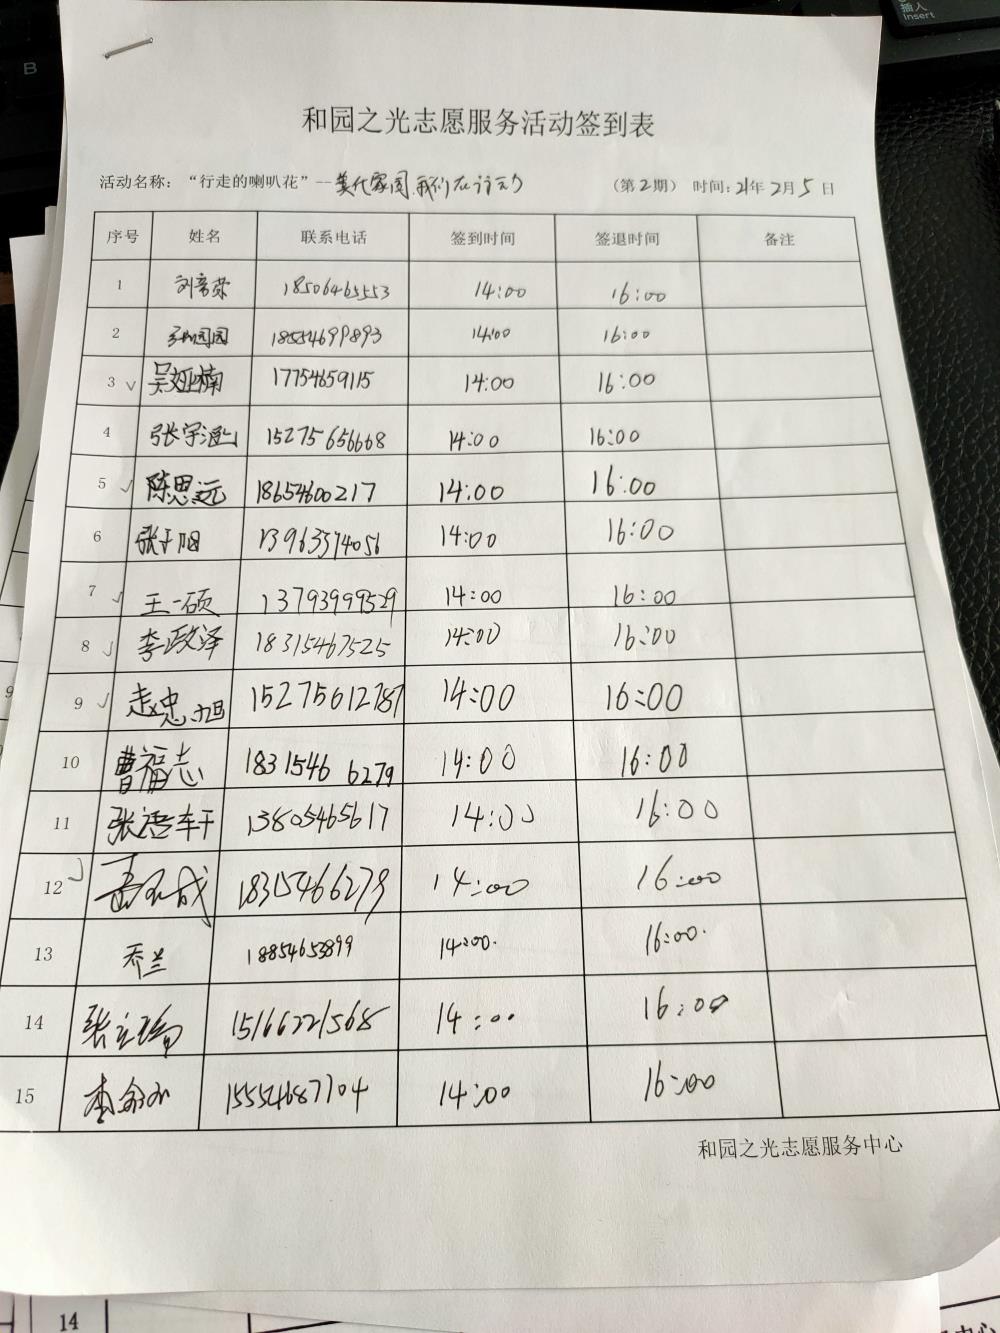 插入
Insert
B
和园之光志愿服务活动签到表
活动名称：“行走的喇叭花”--美化家园，我们在行动 （第2期） 时间：21年2月5日
序号 姓名 联系电话 签到时间 签退时间 备注
1 18506465553 14:00 16:00
2 18554699893 14:00 16:00
3 √ 吴娅楠 17754659115 14:00 16:00
4 张宇涵 15275656668 14:00 16:00
5 √ 陈思远 18654600217 14:00 16:00
6 13963574056 14:00 16:00
7 √ 王一硕 13793999529 14:00 16:00
8 √ 李政泽 18315467525 14:00 16:00
9 √ 赵忠旭 15275612787 14:00 16:00
10 曹福志 18315466279 14:00 16:00
11 张浩轩 13805465617 14:00 16:00
12 √ 18315466279 14:00 16:00
13 乔兰 18854653899 14:00. 16:00.
14 15166221568 14:00 16:00
15 15554687704 14:00 16:00
和园之光志愿服务中心
14